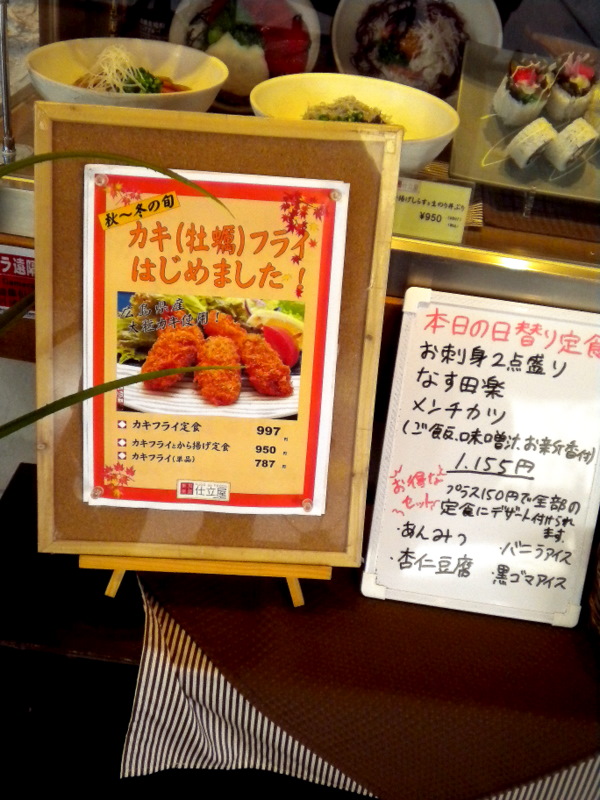 秋〜冬の旬
カキ(牡蠣)フライ
はじめました!
広島県産
大粒カキ使用!
カキフライ定食 997円
カキフライとから揚げ定食 950円
カキフライ(単品) 787円
仕立屋
¥950
本日の日替り定食
お刺身2点盛り
なす田楽
メンチカツ
(ご飯、味噌汁、お新香付)
1,155円
お得な
セット
プラス150円で全部の
定食にデザート付けられ
ます
・あんみつ ・バニラアイス
・杏仁豆腐 ・黒ゴマアイス